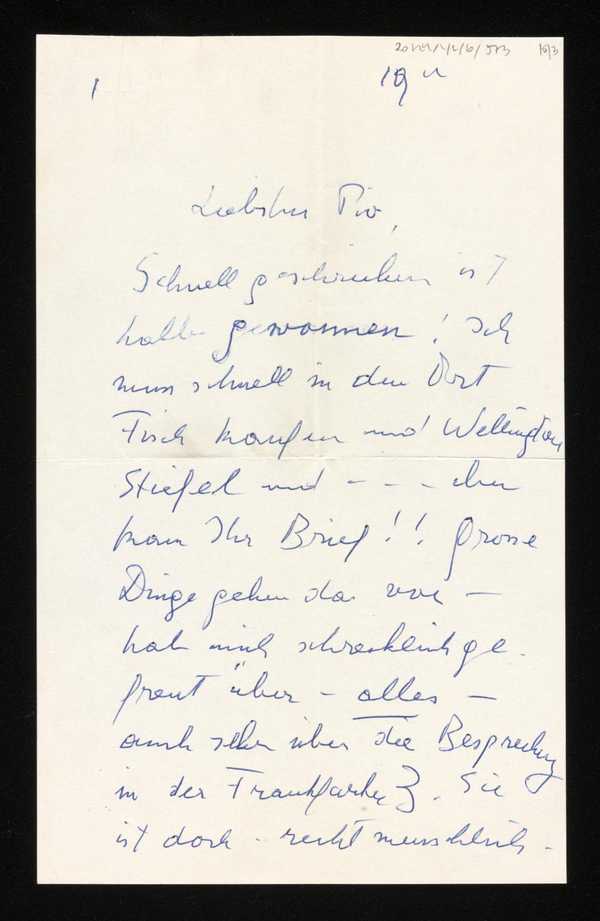 1
Liebster Pio,
Schnell geschrieben ist
halb gewonnen! Ich
muss schnell in den Ort
Fisch kaufen und Wellington
Stiefel und - - - eben
kam Ihr Brief!! Grosse
Dinge gehen da vor -
hab mich schrecklich ge-
freut über - alles -
auch sehr über die Besprechung
in der Frankfurter Z. Sie
ist doch - recht menschlich -